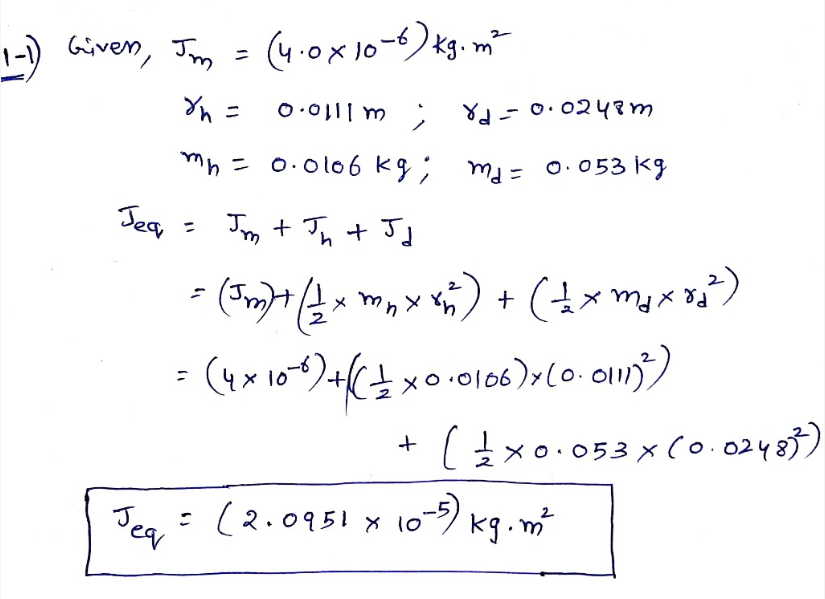 1-1) Given, Jm = (4.0 × 10⁻⁶) kg.m²
rh = 0.0111 m ; rd = 0.0248 m
mh = 0.0106 kg ; md = 0.053 kg
Jeq = Jm + Jh + Jd
= (Jm) + (1/2 × mh × rh²) + (1/2 × md × rd²)
= (4 × 10⁻⁶) + ((1/2 × 0.0106) × (0.0111)²)
+ (1/2 × 0.053 × (0.0248)²)
Jeq = (2.0951 × 10⁻⁵) kg.m²